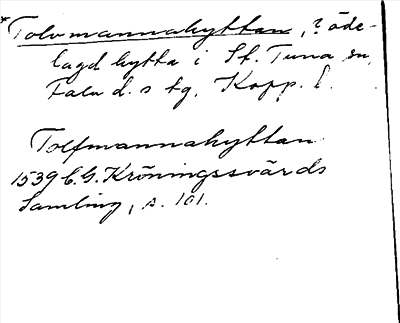 *Tolvmannahyttan, ? öde-
lagd hytta i St. Tuna sn,
Falu d. s tg. Kopp. l.
Tolfmannahyttan
1539 C.G. Kröningssvärds
Samling, s. 101.